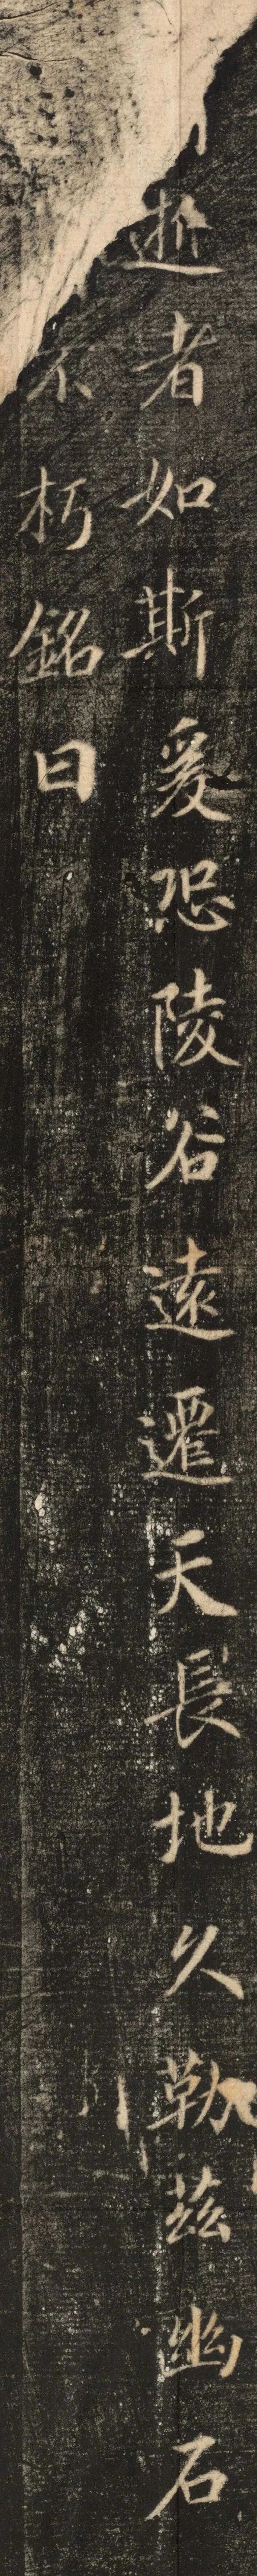 逝者如斯爰恐陵谷遠遷天長地久勒茲幽石
不朽銘曰